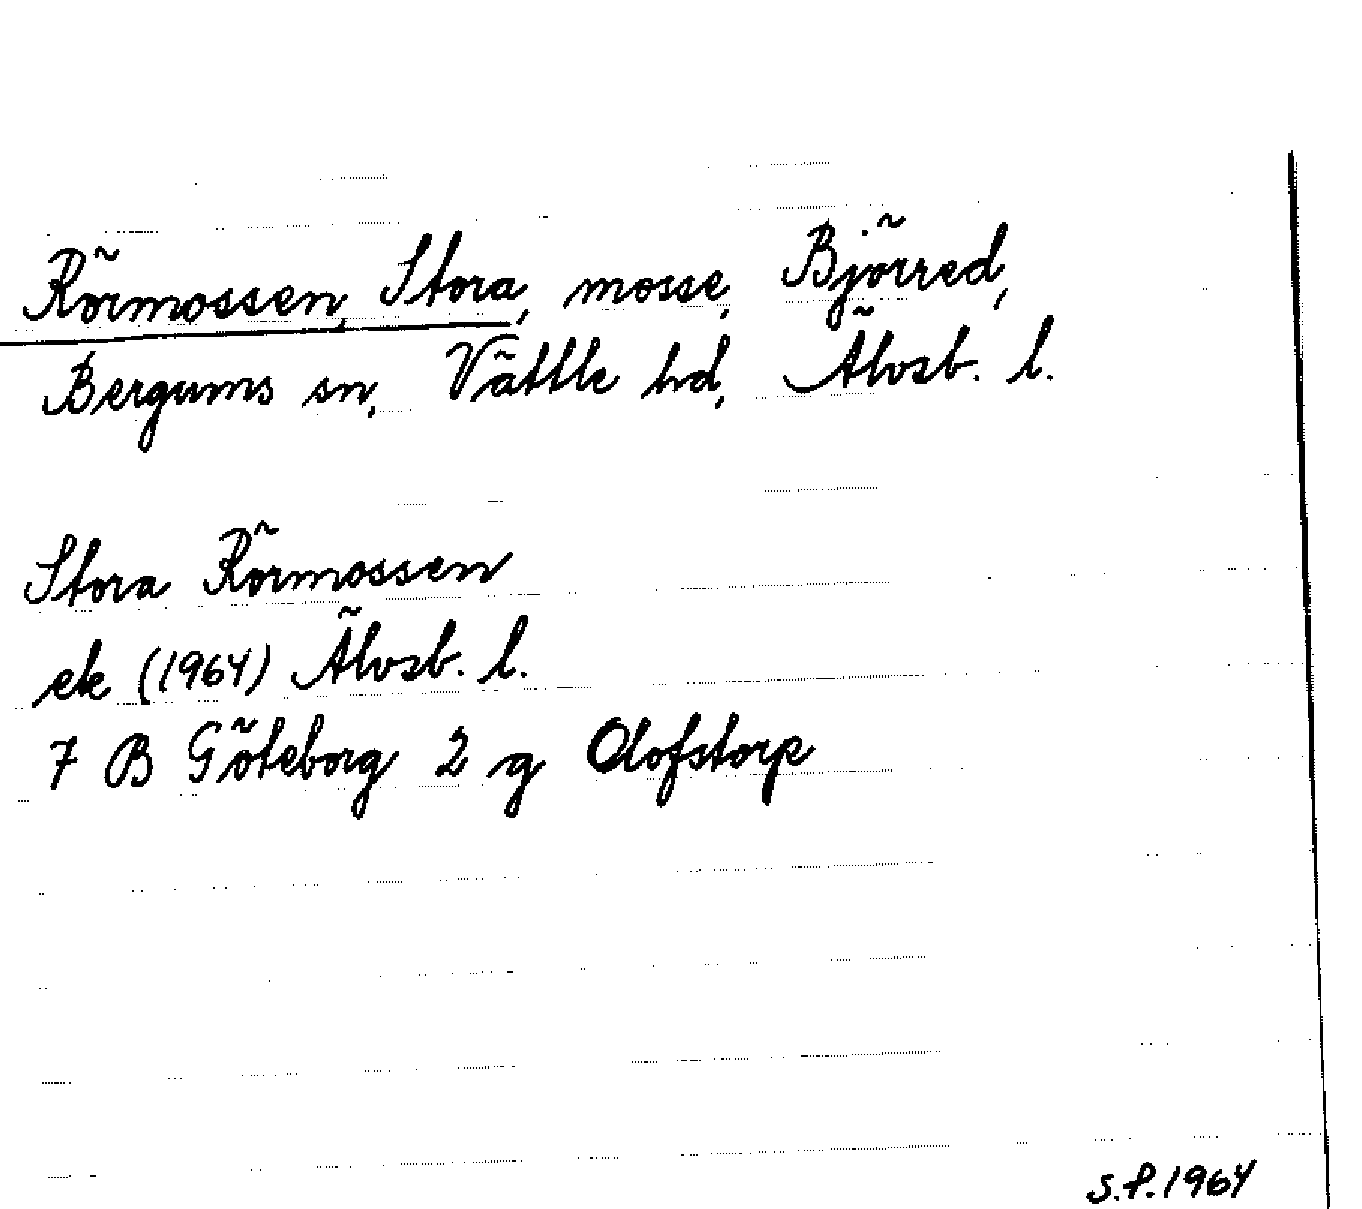 Rörmossen, Stora, mosse, Björred,
Bergums sn, Vättle hd, Älvsb. l.
Stora Rörmossen
ek (1964) Älvsb. l.
7 B Göteborg 2 g Olofstorp
S.P. 1964